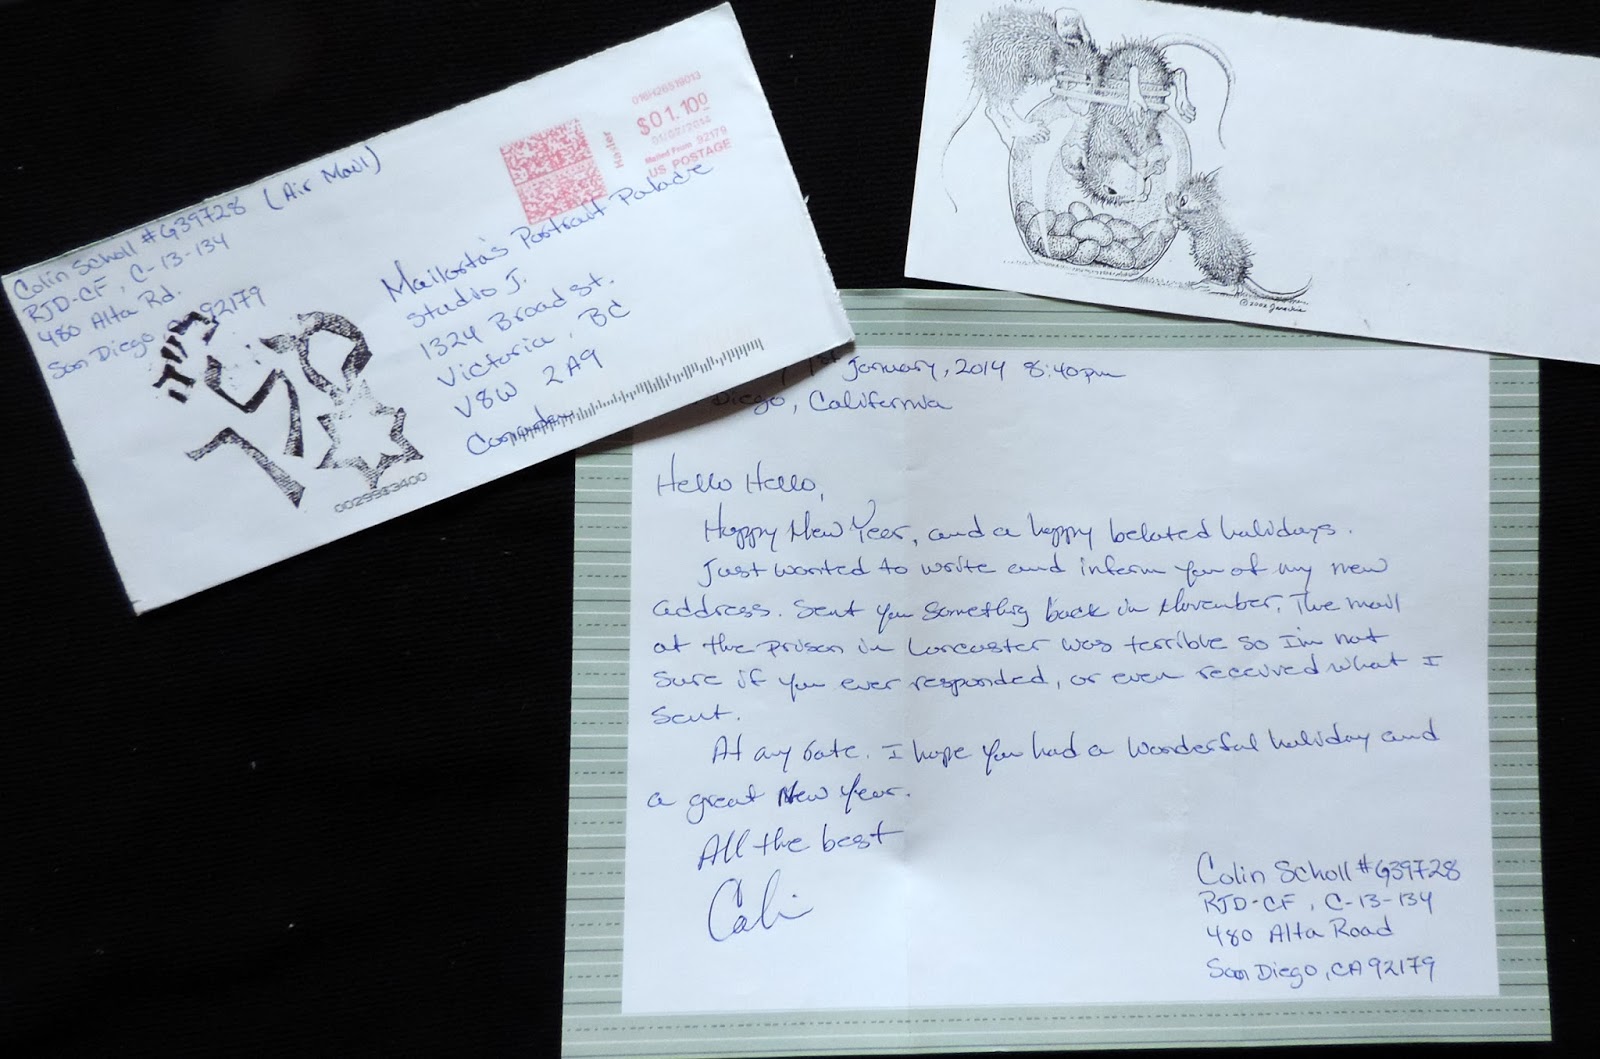 Colin Scholl #G39728 (Air Mail)
RJD-CF, C-13-134
480 Alta Rd.
San Diego, 92179
016H26519013
$01.100
01/02/2014
Mailed From 92179
US POSTAGE
Hasler
Mailarta's Postrait Palace
Studio J.
1324 Broad St.
Victoria, BC
V8W 2A9
Canada
0029983400
©2002
1st January, 2014 8:40pm
Diego, California
Hello Hello,
Happy New Year, and a happy belated holidays.
Just wanted to write and inform you of my new
address. Sent you something back in November. The mail
at the prison in Lancaster was terrible so I'm not
sure if you ever responded, or even received what I
sent.
At any rate. I hope you had a wonderful holiday and
a great New Year.
All the best
Colin
Colin Scholl #G39728
RJD-CF, C-13-134
480 Alta Road
San Diego, CA 92179